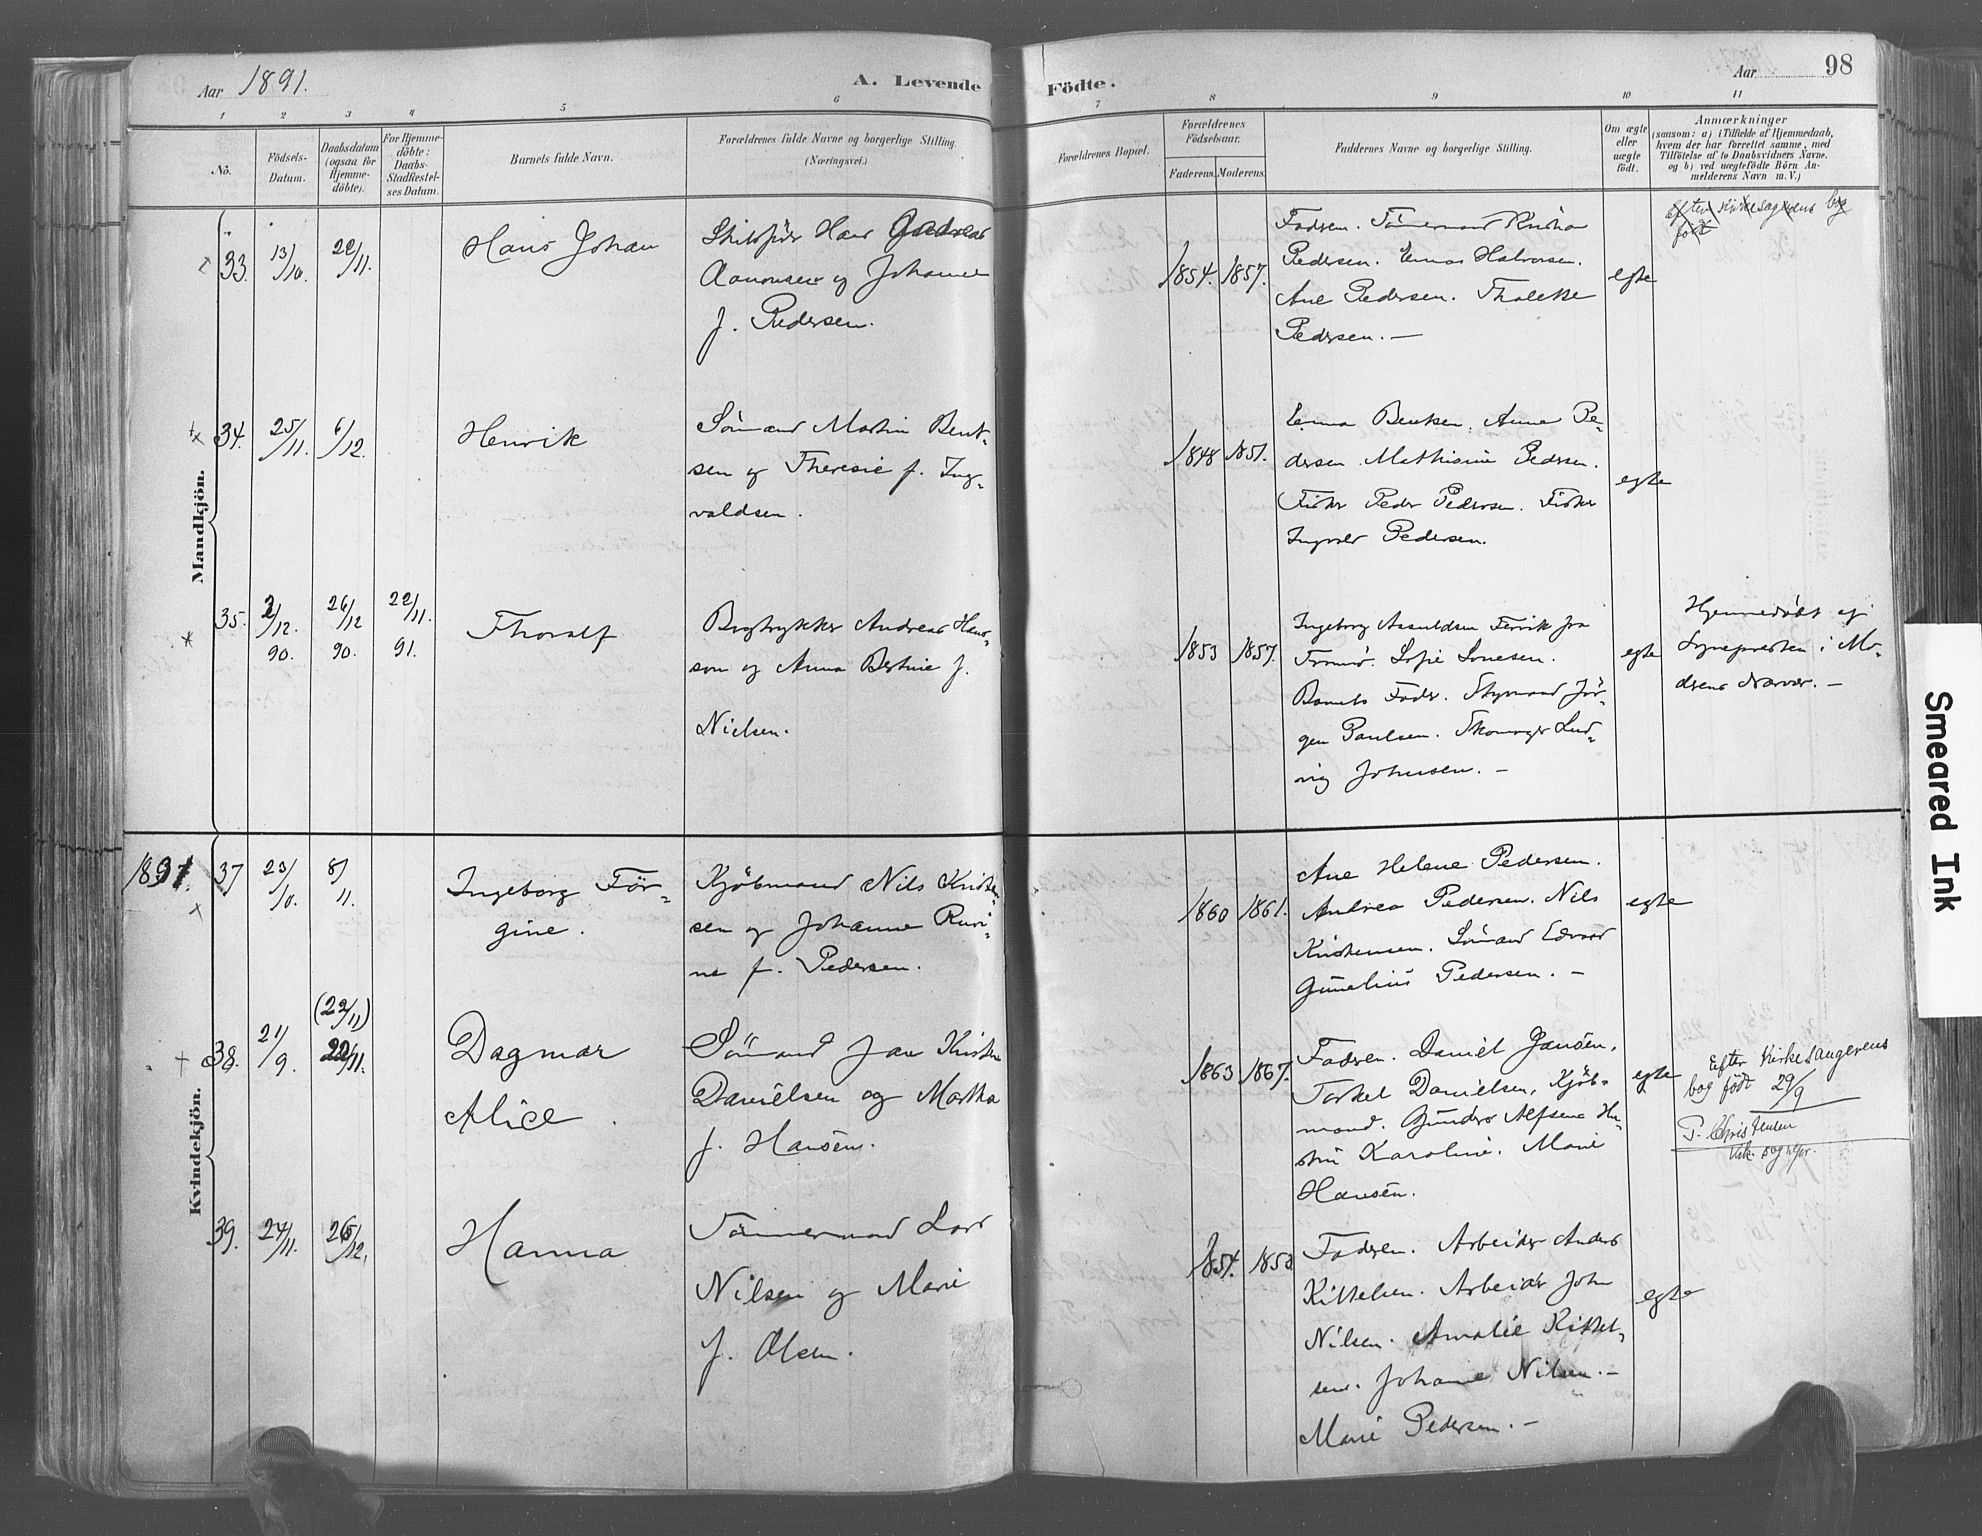 Aar 1891.
A. Levende Födte.
Aar 98
1 2 3 4 5 6 7 8 9 10 11
No.
Födsels-
Datum.
Daabsdatum
(ogsaa for
Hjemme-
döbte).
For Hjemme-
döbte:
Daabs-
Stadfæstel-
ses Datum.
Barnets fulde Navn.
Forældrenes fulde Navne og borgerlige Stilling.
(Næringsvei.)
Forældrenes Bopæl.
Forældrenes
Födselsaar.
Faderens. Moderens.
Faddernes Navne og borgerlige Stilling.
Om ægte
eller
uægte
födt.
Anmærkninger
(saasom: a) i Tilfælde af Hjemmedaab,
hvem der har forrettet samme, med
Tilföielse af to Daabsvidners Navne,
og b) ved uægtefödte Börn An-
melderens Navn m. V.)
Mandkjön.
33. 13/10. 22/11.
Hans Johan
Hans Andreas
Aanonsen og Johanne
f. Pedersen.
1854. 1857.
Fadren. Tömmermand
Pedersen. Halvorsen.
Ane Pedersen. Thalette
Pedersen. —
egte
efter kirkesangerens bog
født
34. 25/11. 6/12.
Henrik
Sömand Martin Bent-
sen og Theresie f. Ing-
valdsen.
1848 1851.
Emma Bentsen. Anna Pe-
dersen. Mathisine Pedersen.
Fisker Peder Pedersen. Fisker
Ingvald Pedersen.
egte
35. 2/12. 90. 26/12 90. 22/11. 91.
Thoralf
Bogtrykker Andreas Han-
son og Anna Bertine f.
Nielsen.
1853 1857.
Ingeborg Fervik fra
Tromö. Sofie
Barnets Fader. Styrmand Jör-
gen Paulsen. Skomager Lud-
vig Johnsen. —
egte
Hjemmedöbt af
Sognepresten i Mo-
derens Nærvær. —
Kvindekjön.
1891. 37 23/10. 8/11.
Ingeborg Jör-
gine.
Kjöbmand Nils Kristen-
sen og Johanne Rasi-
ne f. Pedersen.
1860 1861.
Ane Helene Pedersen.
Andrea Pedersen. Nils
Kristensen. Sömand Edvard
Gunelius Pedersen. —
egte
38. 21/9. (22/11) 22/11.
Dagmar
Alice.
Sömand Jan Kristen
Danielsen og Martha
f. Hansen.
1863 1867.
Fadren. Daniel Jansen.
Torkel Danielsen. Kjöb-
mand. Gunder Alfsens Hu-
stru Karoline. Marie
Hansen.
egte
Efter Kirkesangerens
bog født 29/9
P. Christensen
39. 24/11. 26/12.
Hanna
Tömmermand Lars
Nilsen og Marie
f. Olsen.
1854. 1853
Fadren. Arbeider Anders
Kittelsen. Arbeider John
Nilsen. Amalie Kittel-
sen. Johanne Nilsen. —
Marie Pedersen. —
egte
Smeared Ink